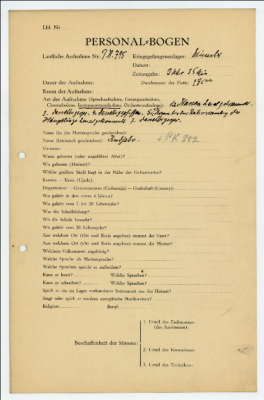 Lfd. Nr
PERSONAL-BOGEN
Lautliche Aufnahme Nr.: P.K. 775 Kriegsgefangenenlager: Münster
Datum:
Zeitangabe: 3 Min 25 Sek
Dauer der Aufnahme: Durchmesser der Platte: 27 cm
Raum der Aufnahme:
Art der Aufnahme (Sprechaufnahme, Gesangsaufnahme,
Choraufnahme, Instrumentenaufnahme, Orchesteraufnahme):
Name (in der Muttersprache geschrieben):
Name (lateinisch geschrieben):
Vorname:
Wann geboren (oder ungefähres Alter)?
Wo geboren (Heimat)?
Welche größere Stadt liegt in der Nähe des Geburtsortes?
Kanton – Kreis (Ujedz):
Departement – Gouvernement (Gubernija) – Grafschaft (County):
Wo gelebt in den ersten 6 Jahren?
Wo gelebt vom 7. bis 20. Lebensjahr?
Was für Schulbildung?
Wo die Schule besucht?
Wo gelebt vom 20. Lebensjahr?
Aus welchem Ort (Ort und Kreis angeben) stammt der Vater?
Aus welchem Ort (Ort und Kreis angeben) stammt die Mutter?
Welchem Volksstamm angehörig?
Welche Sprache als Muttersprache?
Welche Sprachen spricht er außerdem?
Kann er lesen? Welche Sprachen?
Kann er schreiben? Welche Sprachen?
Spielt er ein im Lager vorhandenes Instrument aus der Heimat?
Singt oder spielt er moderne europäische Musikweisen?
Religion: Beruf:
1. Urteil des Fachmannes
(des Assistenten):
Beschaffenheit der Stimme:
2. Urteil des Kommissars:
3. Urteil des Technikers: